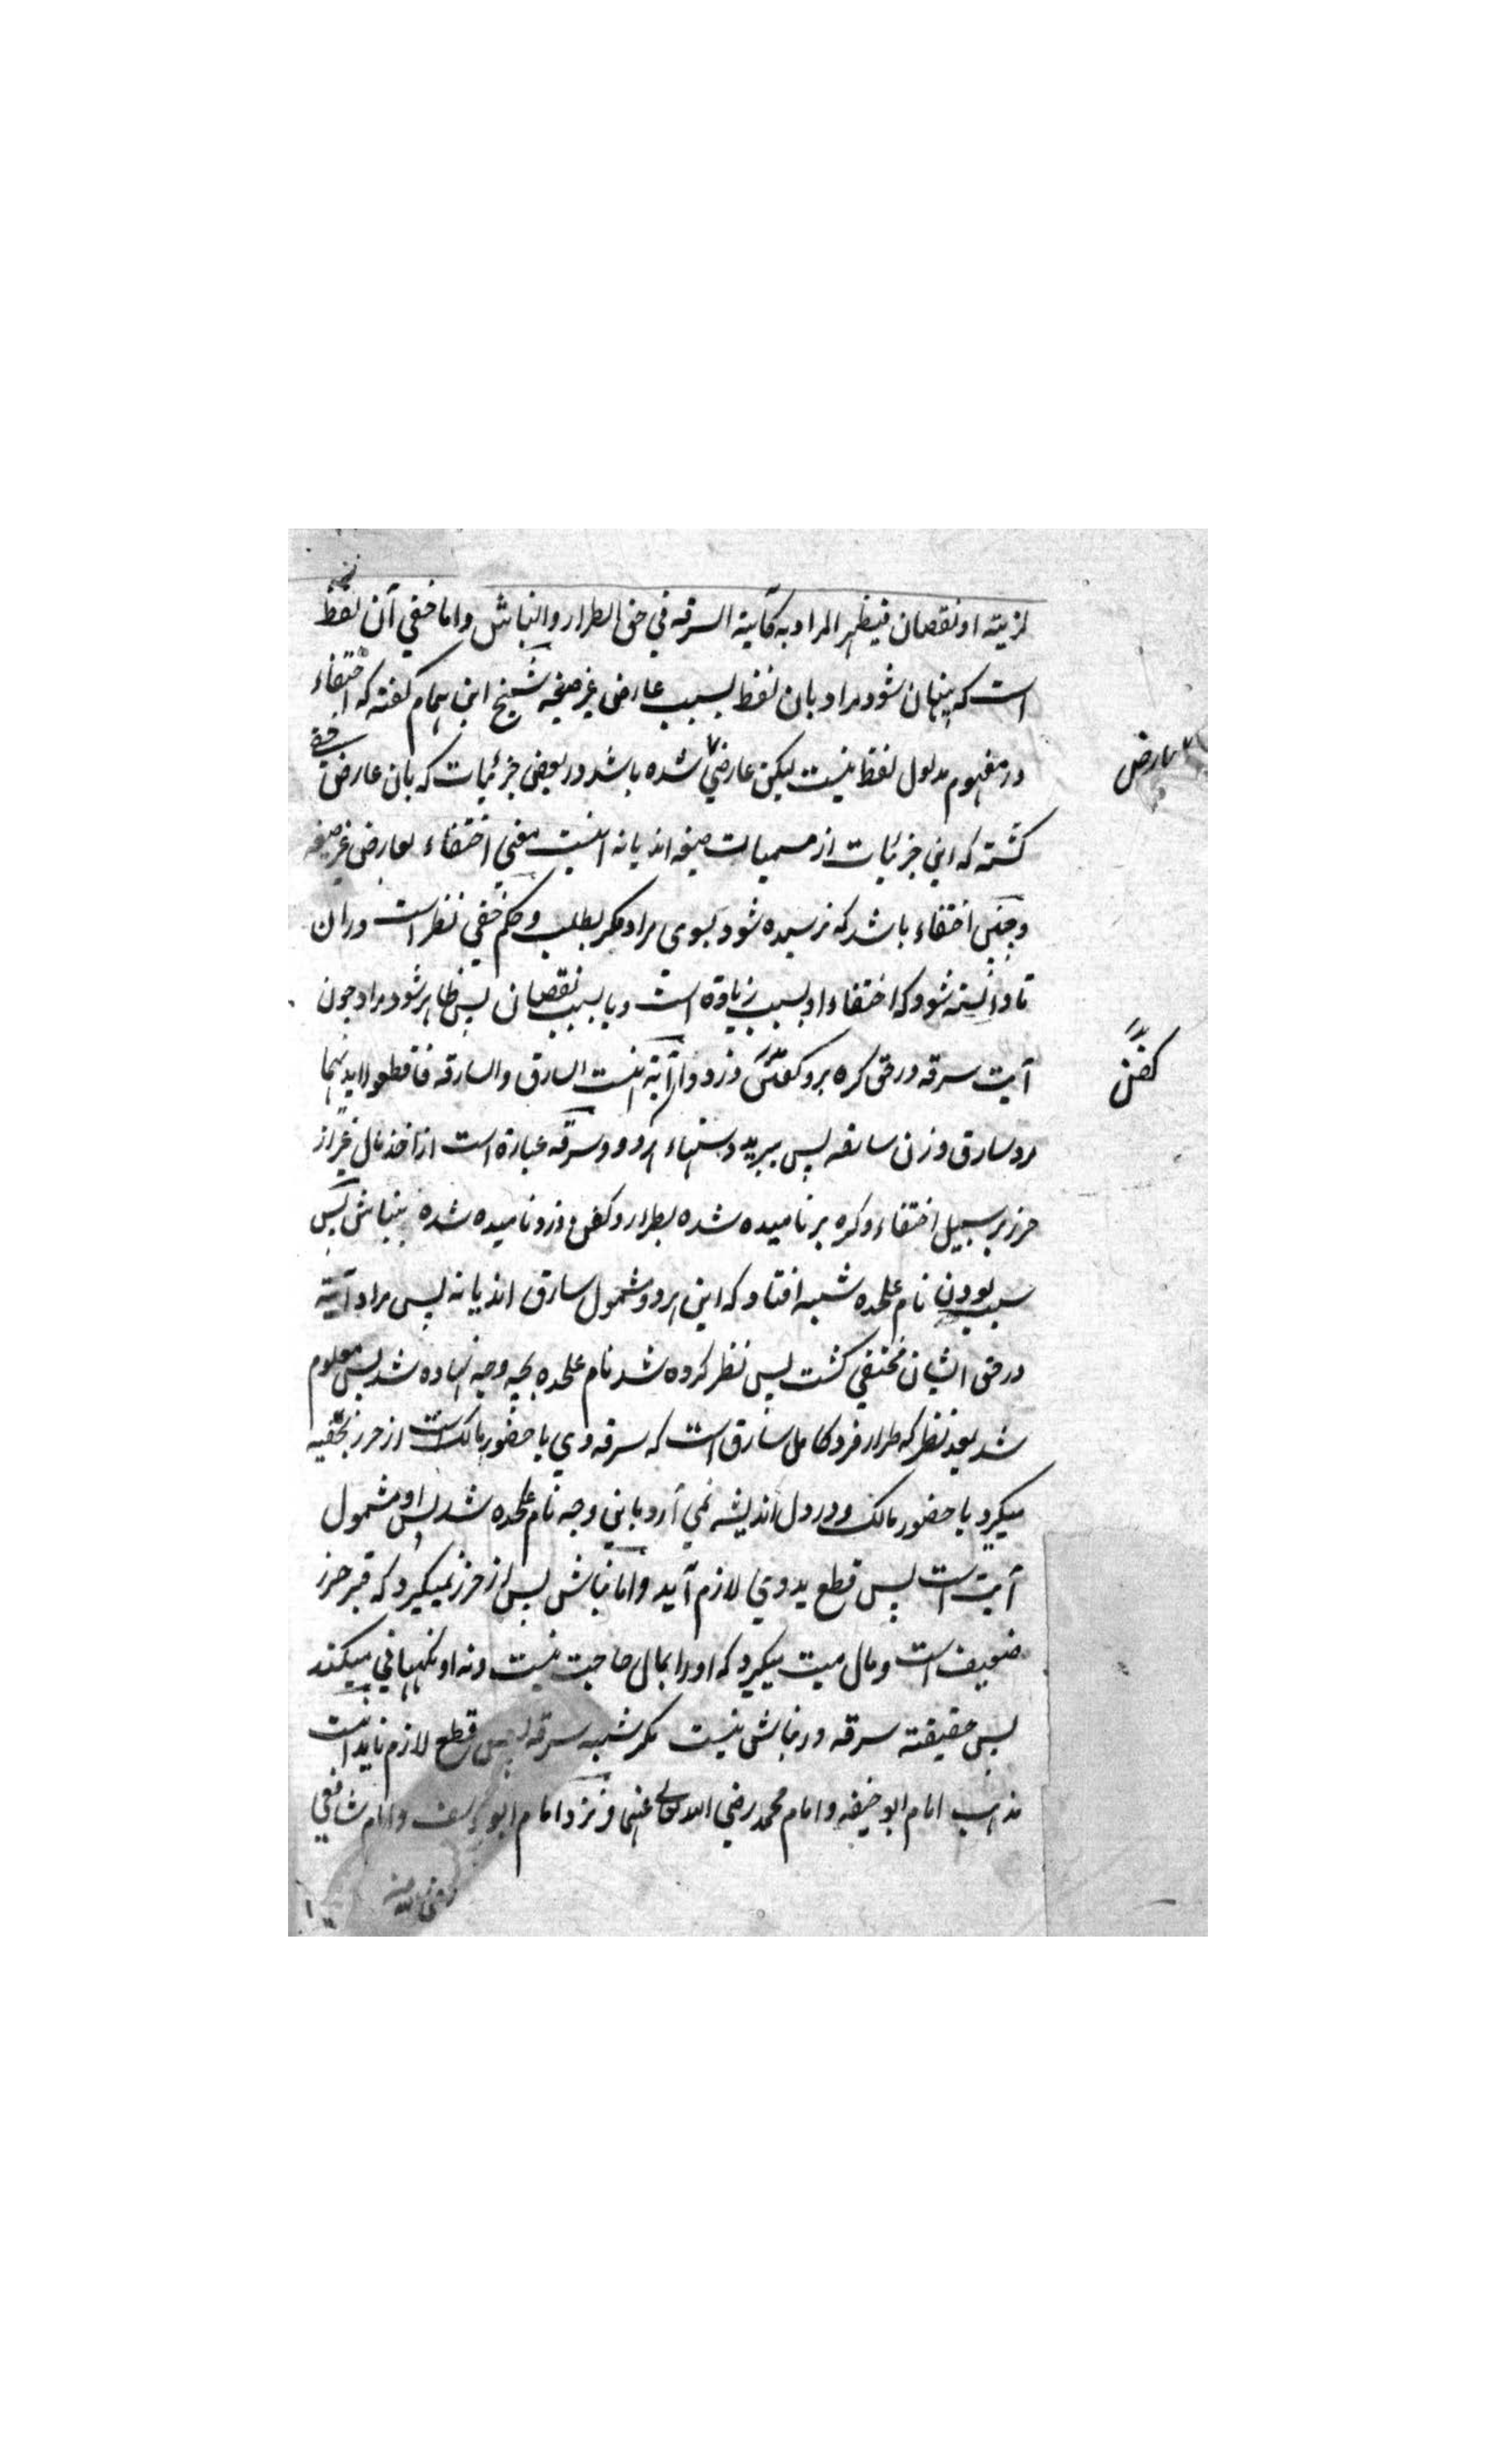 لمزیته او نقصان فیظهر المراد به کآیة السرقه فی حق الطرار والنباش واما خفی آن لفظ
است که پنهان شود مراد بان لفظ بسبب عارض غیر صیغه شیخ ابن همام گفته که اختفاء
در مفهوم مدلول لفظ نیست لیکن عارضی شده باشد در بعضی جزئیات که بان عارض خفی
گشته که این جزئیات از مسمیات صیغه اند یا نه اینست معنی اختفاء بعارض غیر صیغه
و چنین اختفاء باشد که نرسیده شود بسوی مراد مگر بطلب و حکم خفی نظر است دران
تا دانسته شود که اختفاء او بسبب زیادة است و یا بسبب نقصان پس ظاهر شود مراد چون
آیت سرقه در حق کره بر و کفن دزد و آیة اینست السارق والسارقه فاقطعوا ایدیهما
مرد سارق و زن سارقه پس ببرید دستهاء هر دو و سرقه عبارة است از اخذ مال غیر از
حرز بر سبیل اختفاء و کره بر نامیده شده بطرار و کفن دزد نامیده شده بنباش پس
بسبب بودن نام علحده شبهه افتاد که این هر دو مشمول سارق اند یا نه پس مراد آیة
در حق ایشان مختفی گشت پس نظر کرده شد نام علحده بچه وجه نهاده شد پس معلوم
شد بعد نظر که طرار فرد کامل سارق است که سرقه وی با حضور مالک است از حرز بخفیه
میگیرد با حضور مالک و در دل اندیشه نمی آرد باین وجه نام علحده شد پس او مشمول
آیت است پس قطع ید وی لازم آید و اما نباش پس از حرز نمیگیرد که قبر حرز
ضعیف است و مال میت میگیرد که او را بمال حاجت نیست و نه او نگهبانی میکند
پس حقیقته سرقه در نباش نیست مگر شبهه سرقه پس قطع لازم نیاید اینست
مذهب امام ابو حنیفه و امام محمد رضی الله تعالی عنهما و نزد امام ابو یوسف و امام شافعی
رضی الله
عارض
کفن